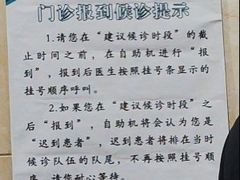 门诊报到候诊提示
1.请您在“建议候诊时段”的截
止时间之前，在自助机进行“报
到”，报到后医生按照挂号条显示的
挂号顺序呼叫。
2.如果您在“建议候诊时段”之
后“报到”，自助机将会认为您是
“迟到患者”，迟到患者将排在当时
候诊队伍的队尾，不再按照挂号顺
序，请您耐心等待。